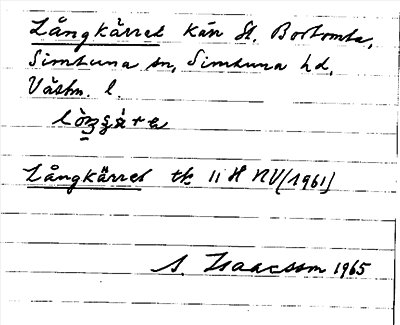 Långkärret kärr St. Bortomta,
Simtuna sn, Simtuna hd,
Västm. l.
Långkärret tk 11 H NV (1961)
S. Isaacsson 1965